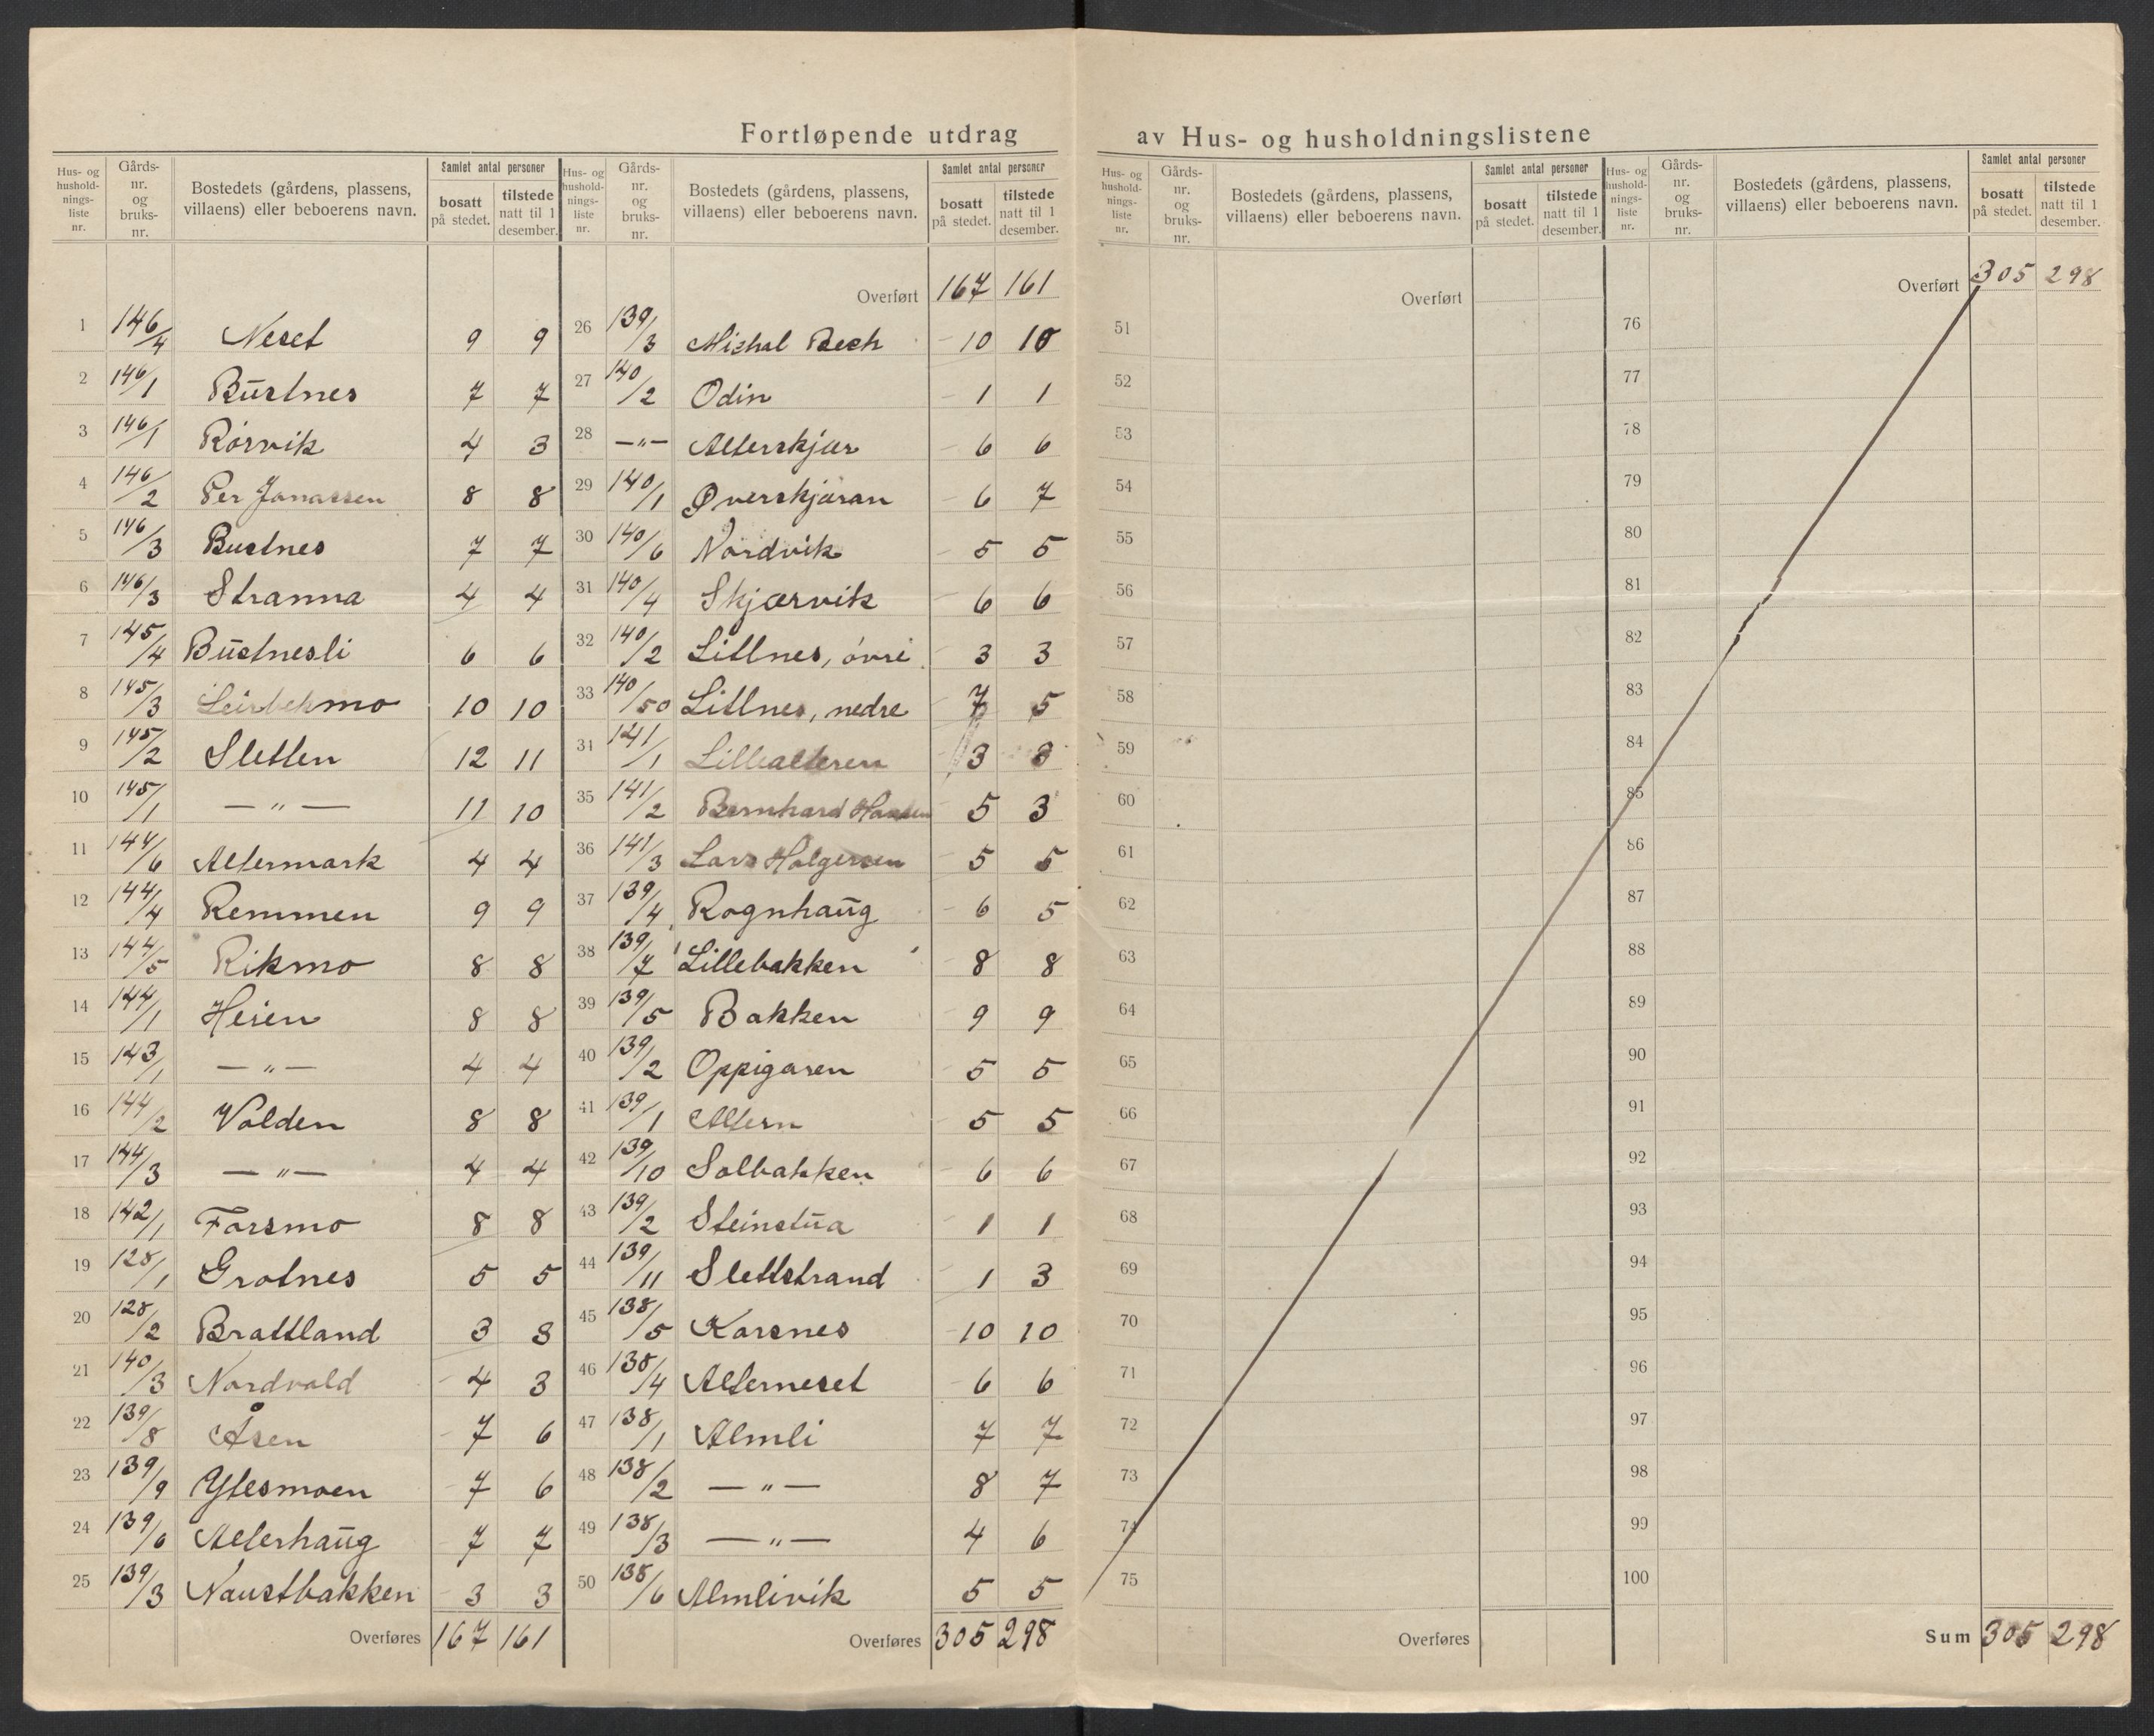 Fortløpende utdrag av Hus- og husholdningslistene
Hus- og hushold-nings-liste nr. Gårds-nr. og bruks-nr. Bostedets (gårdens, plassens, villaens) eller beboerens navn. Samlet antal personer bosatt på stedet. tilstede natt til 1 desember.
1 146/4 Neset 9 9
2 146/1 Bustnes 7 7
3 146/1 Rørvik 4 3
4 146/2 Per Jonassen 8 8
5 146/3 Bustnes 7 7
6 146/3 Stranna 4 4
7 145/4 Bustnesli 6 6
8 145/3 Leirbekmo 10 10
9 145/2 Sletten 12 11
10 145/1 — " — 11 10
11 144/6 Altermark 4 4
12 144/4 Remmen 9 9
13 144/5 Rikmo 8 8
14 144/1 Heien 8 8
15 143/1 — " — 4 4
16 144/2 Volden 8 8
17 144/3 — " — 4 4
18 142/1 Forsmo 8 8
19 128/1 Grotnes 5 5
20 128/2 Brattland 3 3
21 140/3 Nordvold 4 3
22 139/8 Åsen 7 6
23 139/9 Ytesmoen 7 6
24 139/6 Alterhaug 7 7
25 139/3 Naustbakken 3 3
Overføres 167 161
Hus- og hushold-nings-liste nr. Gårds-nr. og bruks-nr. Bostedets (gårdens, plassens, villaens) eller beboerens navn. Samlet antal personer bosatt på stedet. tilstede natt til 1 desember.
Overført 167 161
26 139/3 Michal Bech 10 10
27 140/2 Odin 1 1
28 — " — Alterskjær 6 6
29 140/1 Øverskjæran 6 7
30 140/6 Nordvik 5 5
31 140/4 Skjærvik 6 6
32 140/2 Litlnes, øvre 3 3
33 140/50 Litlnes, nedre 7 5
31 141/1 Lillealteren 3 3
35 141/2 Bernhard Hansen 5 3
36 141/3 Lars Holgersen 5 5
37 139/4 Rognhaug 6 5
38 139/7 Lillebakken 8 8
39 139/5 Bakken 9 9
40 139/2 Oppigaren 5 5
41 139/1 Altern 5 5
42 139/10 Solbakken 6 6
43 139/2 Steinstua 1 1
44 139/11 Slettstrand 1 3
45 138/5 Korsnes 10 10
46 138/4 Alterneset 6 6
47 138/1 Almli 7 7
48 138/2 — " — 8 7
49 138/3 — " — 4 6
50 138/6 Almlivik 5 5
Overføres 305 298
Hus- og hushold-nings-liste nr. Gårds-nr. og bruks-nr. Bostedets (gårdens, plassens, villaens) eller beboerens navn. Samlet antal personer bosatt på stedet. tilstede natt til 1 desember.
Overført
51
52
53
54
55
56
57
58
59
60
61
62
63
64
65
66
67
68
69
70
71
72
73
74
75
Overføres
Hus- og hushold-nings-liste nr. Gårds-nr. og bruks-nr. Bostedets (gårdens, plassens, villaens) eller beboerens navn. Samlet antal personer bosatt på stedet. tilstede natt til 1 desember.
Overført 305 298
76
77
78
79
80
81
82
83
84
85
86
87
88
89
90
91
92
93
94
95
96
97
98
99
100
Sum 305 298